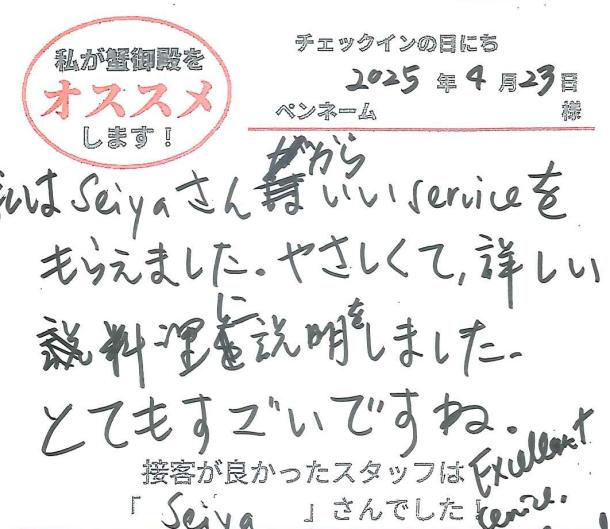 私が蟹御殿を
オススメ
します！
チェックインの日にち
2025年4月23日
ペンネーム 様
私はSeiyaさんから いい serviceを
もらえました。やさしくて,詳しい
料理に説明をしました.
とてもすごいですね.
接客が良かったスタッフは
「Seiya」さんでした！
Excellent